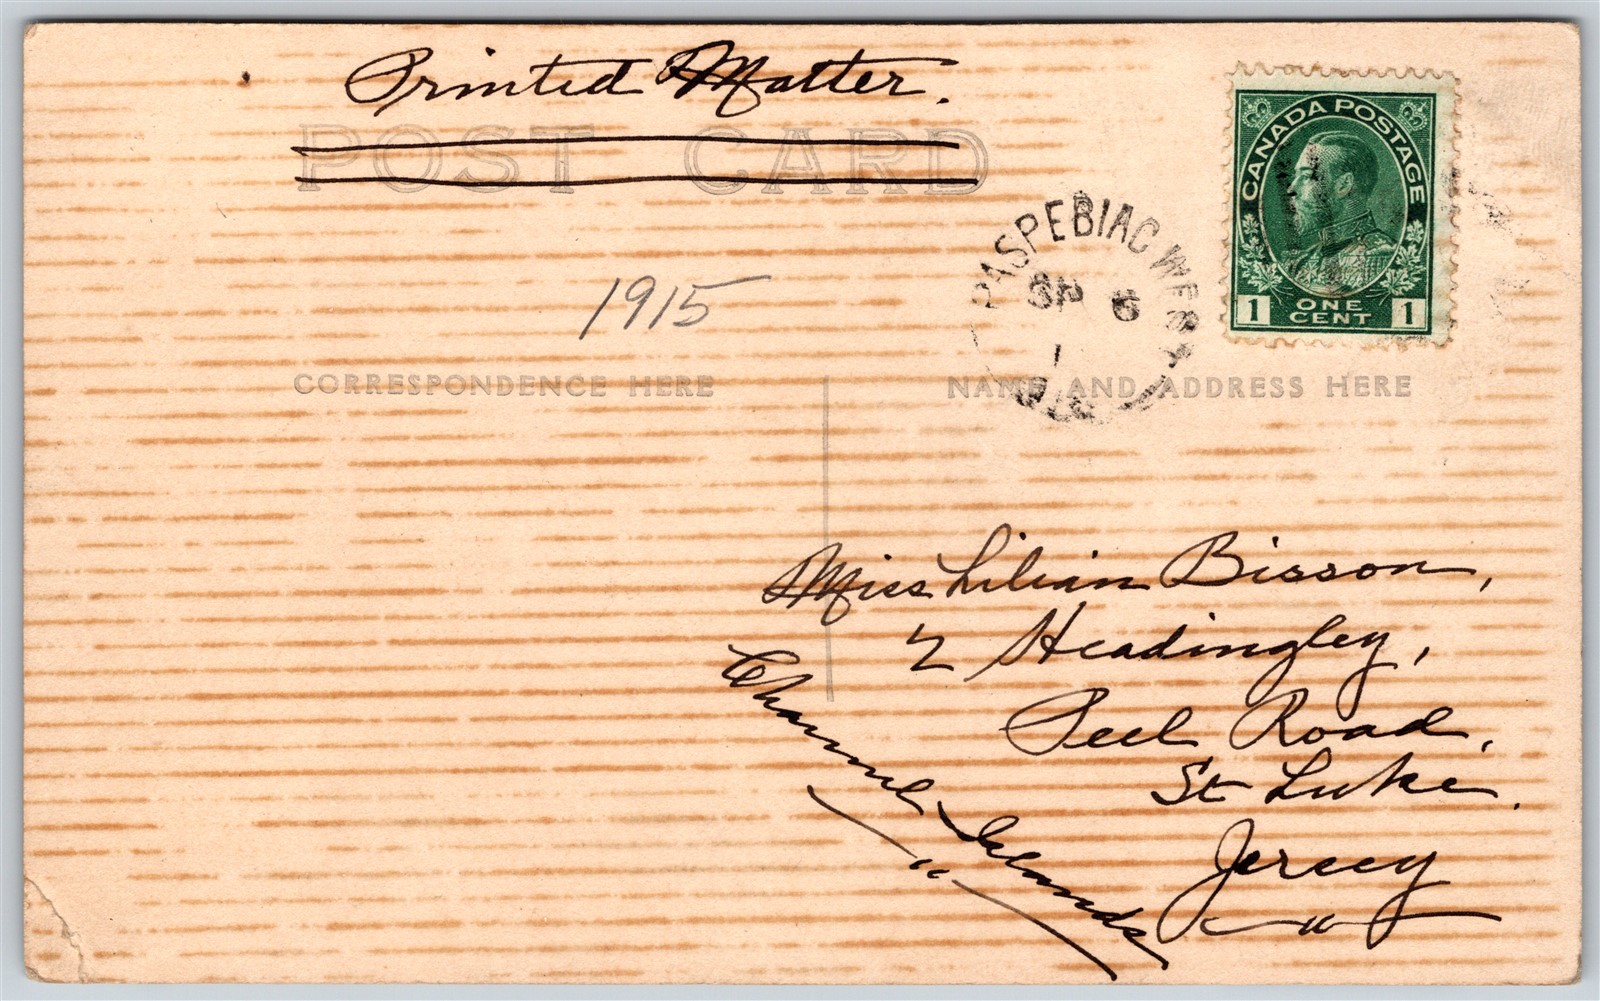 Printed Matter.
POST CARD
CANADA POSTAGE
1 ONE CENT 1
PASPEBIAC WEST
SP 6
1
QUE
1915
CORRESPONDENCE HERE
NAME AND ADDRESS HERE
Miss Lilian Bisson,
2 Headingley,
Peel Road,
St Luke.
Jersey
Channel Islands